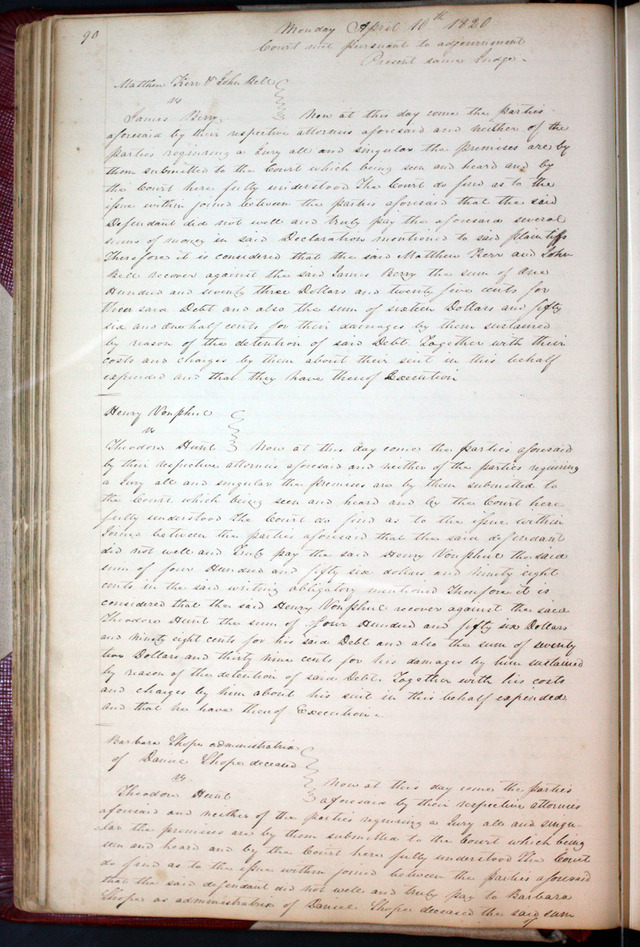 90
Monday April 10th 1820
Court met pursuant to adjournment
Present same Judge.
Matthew Kerr & John Bell
vs
James Berry Now at this day come the parties
aforesaid by their respective attornies aforesaid and neither of the
parties requiring a Jury all and singular the premises are by
them submitted to the Court which being seen and heard and by
the Court here fully understood The Court do find as to the
issue within joined between the parties aforesaid that the said
Defendant did not well and truly pay the aforesaid several
sums of money in said Declaration mentioned to said plaintiffs
Therefore it is considered that the said Matthew Kerr and John
Bell recover against the said James Berry the sum of One
Hundred and seventy three Dollars and twenty five cents for
their said Debt and also the sum of sixteen Dollars and fifty
six and one half cents for their damages by them sustained
by reason of the detention of said Debt. Together with their
costs and charges by them about their suit in this behalf
expended and that they have thereof Execution
Henry Vonphul
vs
Theodore Hunt Now at this day comes the parties aforesaid
by their respective attornies aforesaid and neither of the parties requiring
a Jury all and singular the premises are by them submitted to
the Court which being seen and heard and by the Court here
fully understood The Court do find as to the issue within
Joined between the parties aforesaid that the said defendant
did not well and truly pay the said Henry Vonphul the said
sum of four Hundred and fifty six dollars and ninety eight
cents in the said writing obligatory mentioned Therefore it is
considered that the said Henry Vonphul recover against the said
Theodore Hunt the sum of four Hundred and fifty six Dollars
and ninety eight cents for his said Debt and also the sum of seventy
two Dollars and thirty nine cents for his damages by him sustained
by reason of the detention of said Debt. Together with his costs
and charges by him about his suit in this behalf expended
and that he have thereof Execution.
Barbara Shope administratrix
of Daniel Shope deceased
vs
Theodore Hunt Now at this day come the parties
aforesaid by their respective attornies
aforesaid and neither of the parties requiring a Jury all and singu-
lar the premises are by them submitted to the Court which being
seen and heard and by the Court here fully understood The Court
do find as to the issue within joined between the parties aforesaid
that the said defendant did not well and truly pay to Barbara
Shope as administratrix of Daniel Shope deceased the said sum
of